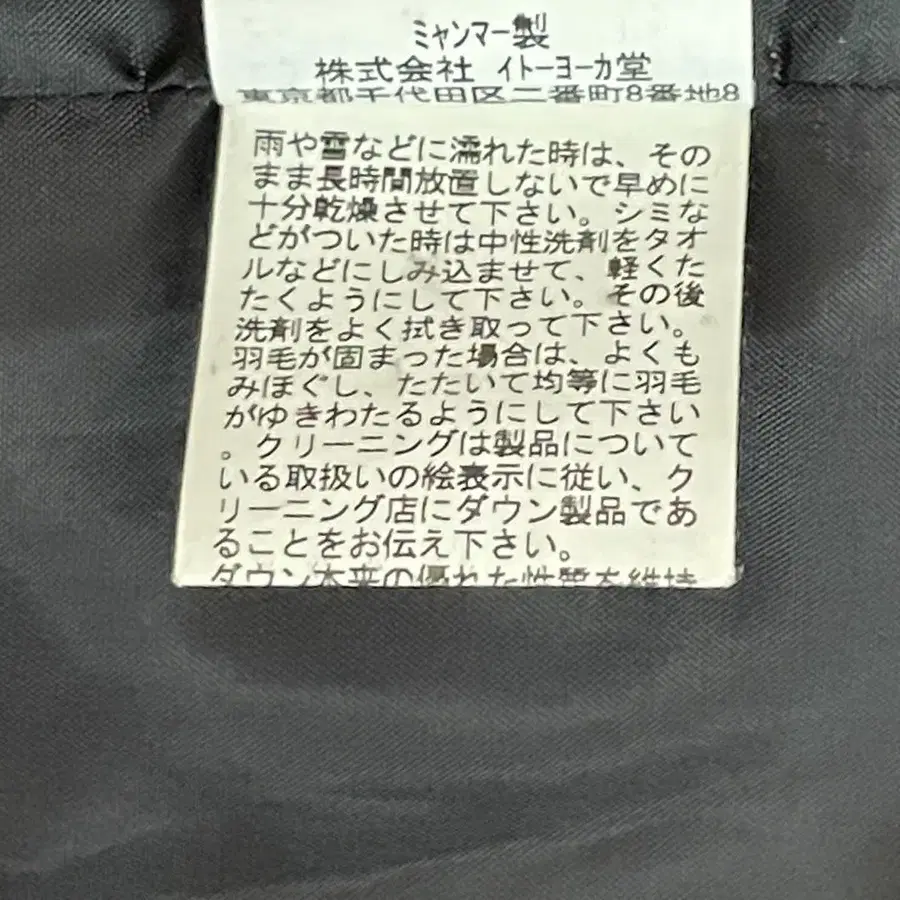 ミャンマー製
株式会社 イトーヨーカ堂
東京都千代田区二番町8番地8
雨や雪などに濡れた時は、その
まま長時間放置しないで早めに
十分乾燥させて下さい。シミな
どがついた時は中性洗剤をタオ
ルなどにしみ込ませて、軽くた
たくようにして下さい。その後
洗剤をよく拭き取って下さい。
羽毛が固まった場合は、よくも
みほぐし、たたいて均等に羽毛
がゆきわたるようにして下さい
。クリーニングは製品について
いる取扱いの絵表示に従い、ク
リーニング店にダウン製品であ
ることをお伝え下さい。
ダウン本来の優れた性質を維持